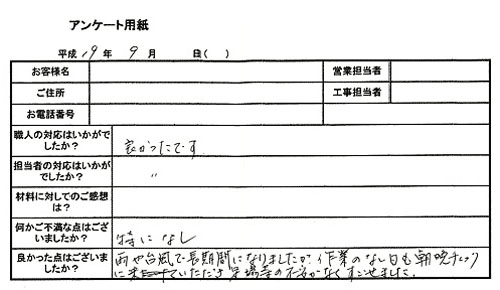 アンケート用紙
平成 19 年 9 月 日( )
お客様名 営業担当者
ご住所 工事担当者
お電話番号
職人の対応はいかがで
したか?
良かったです
担当者の対応はいかが
でしたか?
〃
材料に対してのご感想
は?
何かご不満な点はござ
いましたか?
特になし
良かった点はございま
したか?
雨や台風で長期間になりましたが、作業のない日も朝晩チェック
に来ていただき 足場等の不安がなくすごせました。